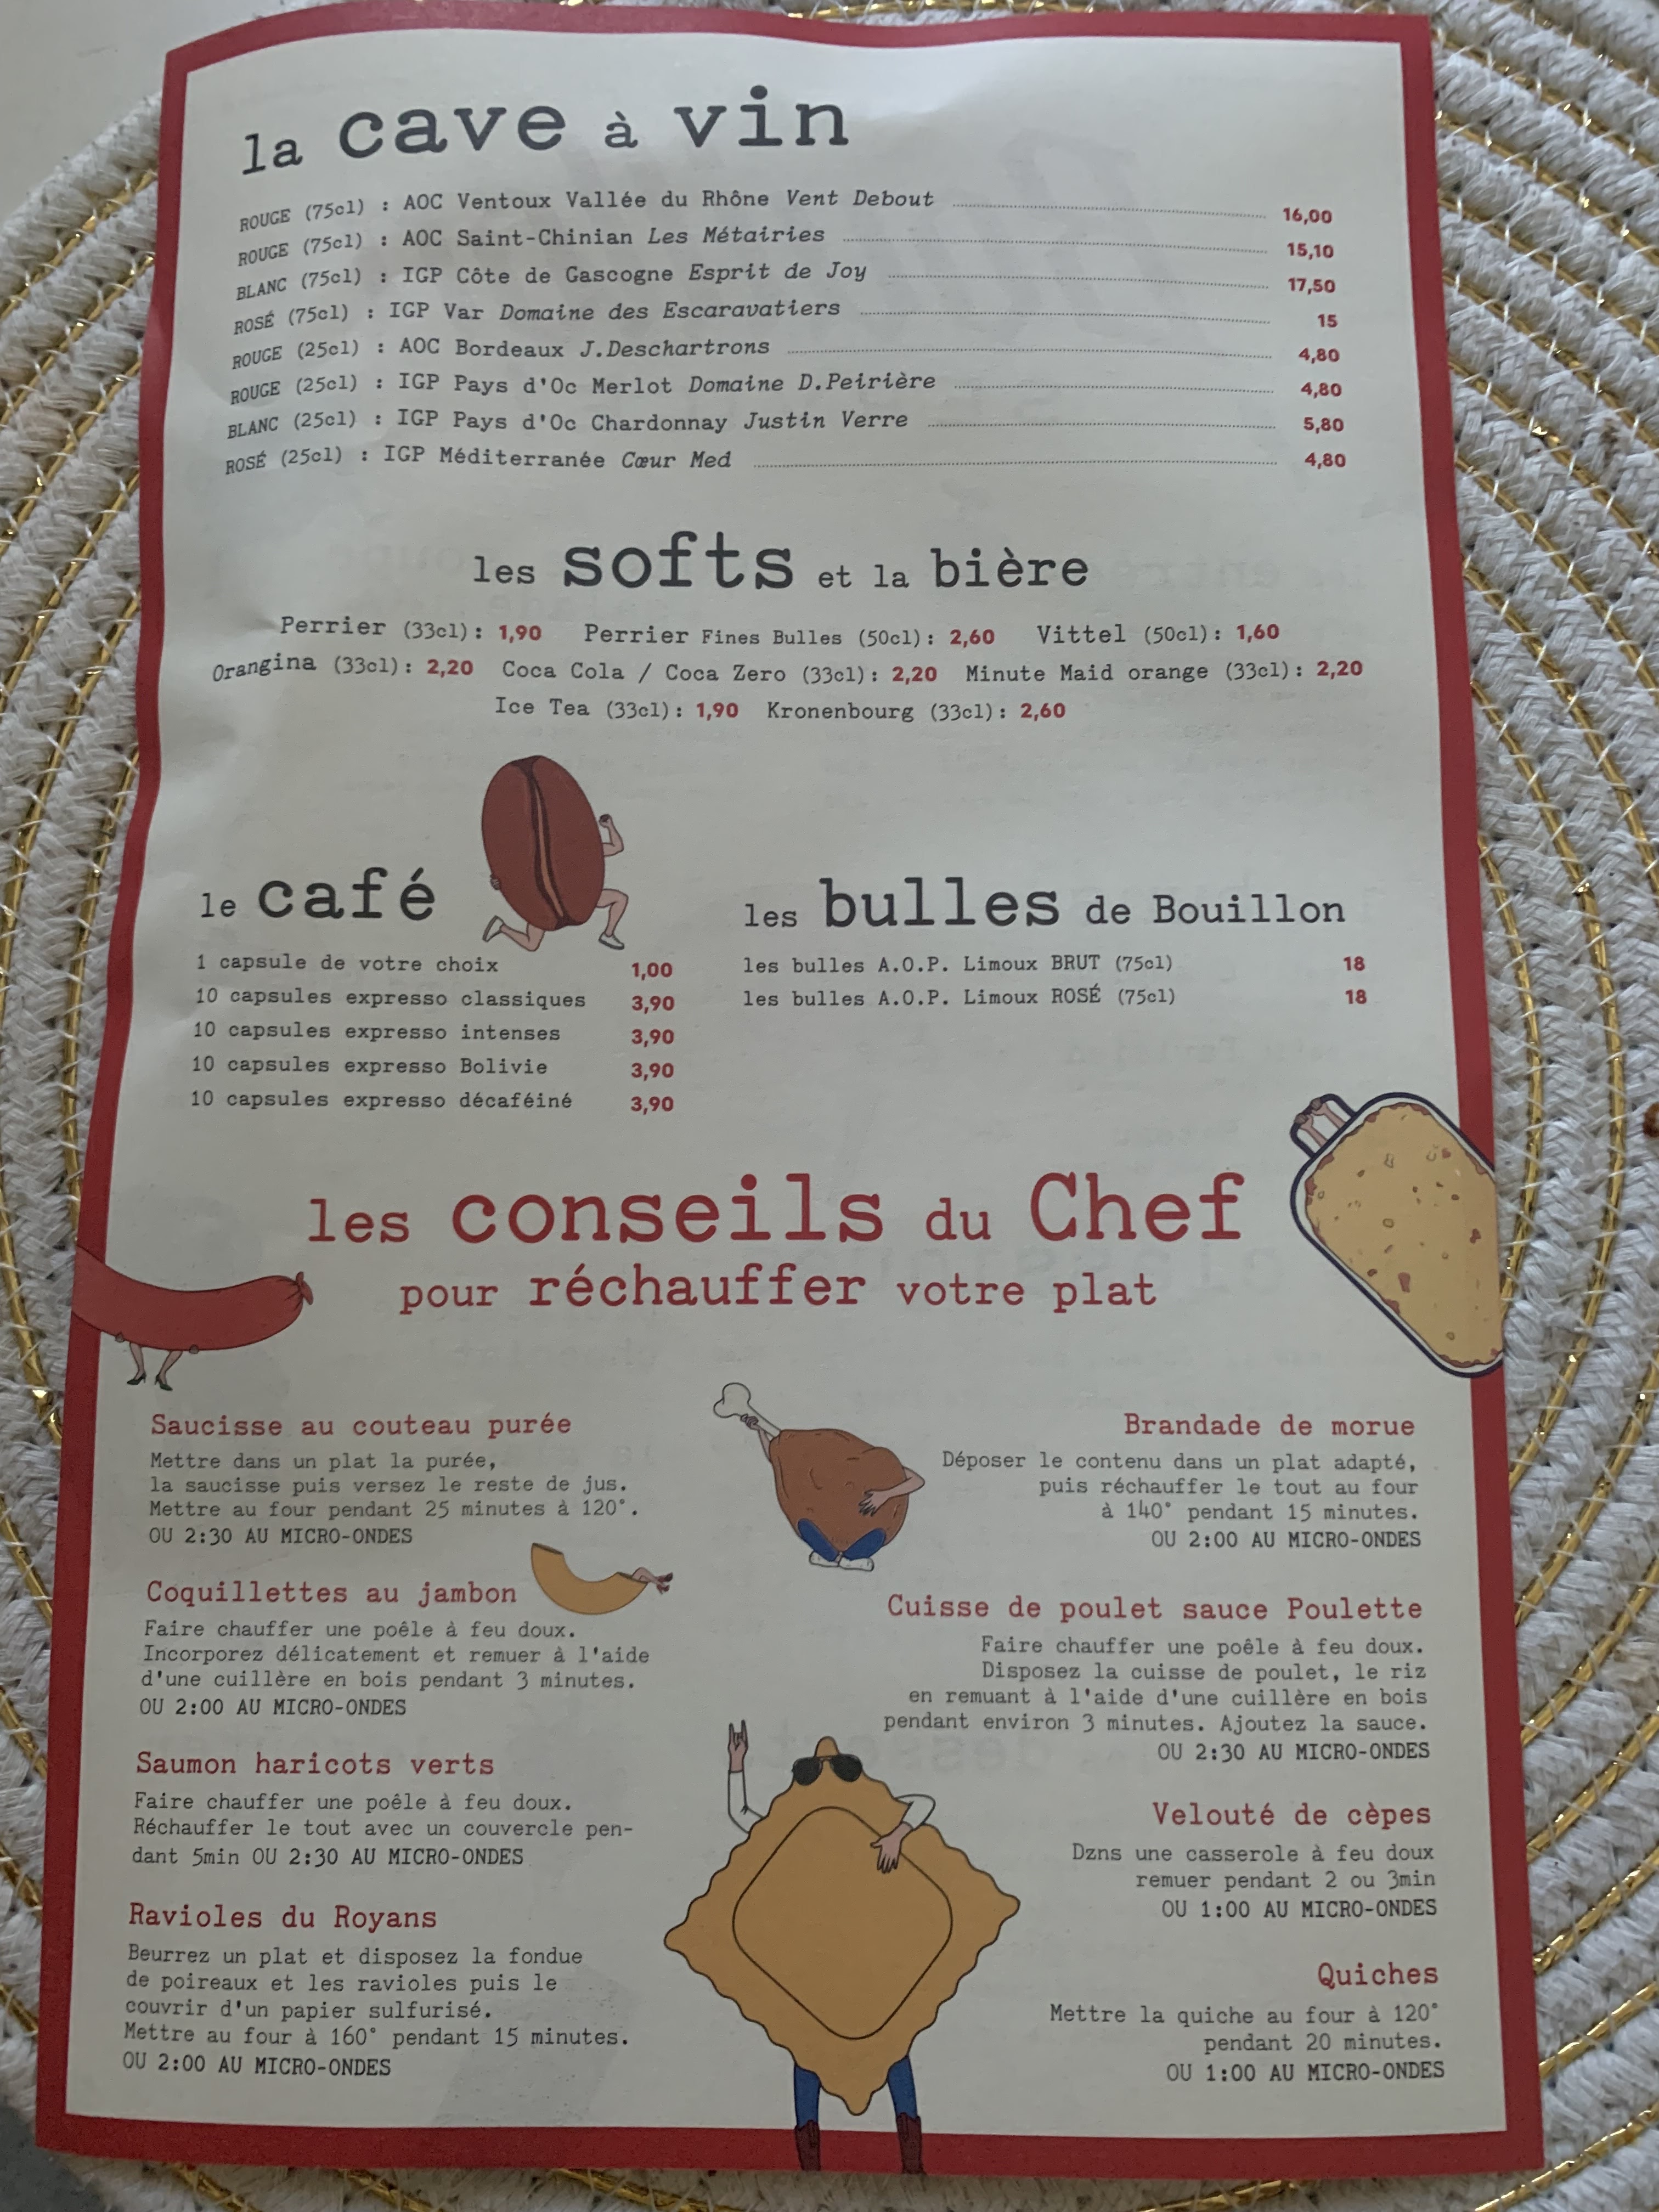 la cave à vin
ROUGE (75cl) : AOC Ventoux Vallée du Rhône Vent Debout 16,00
ROUGE (75cl) : AOC Saint-Chinian Les Métairies 15,10
BLANC (75cl) : IGP Côte de Gascogne Esprit de Joy 17,50
ROSÉ (75cl) : IGP Var Domaine des Escaravatiers 15
ROUGE (25cl) : AOC Bordeaux J.Deschartrons 4,80
ROUGE (25cl) : IGP Pays d'Oc Merlot Domaine D.Peirière 4,80
BLANC (25cl) : IGP Pays d'Oc Chardonnay Justin Verre 5,80
ROSÉ (25cl) : IGP Méditerranée Cœur Med 4,80
les softs et la bière
Perrier (33cl): 1,90 Perrier Fines Bulles (50cl): 2,60 Vittel (50cl): 1,60
Orangina (33cl): 2,20 Coca Cola / Coca Zero (33cl): 2,20 Minute Maid orange (33cl): 2,20
Ice Tea (33cl): 1,90 Kronenbourg (33cl): 2,60
le café
1 capsule de votre choix 1,00
10 capsules expresso classiques 3,90
10 capsules expresso intenses 3,90
10 capsules expresso Bolivie 3,90
10 capsules expresso décaféiné 3,90
les bulles de Bouillon
les bulles A.O.P. Limoux BRUT (75cl) 18
les bulles A.O.P. Limoux ROSÉ (75cl) 18
les conseils du Chef
pour réchauffer votre plat
Saucisse au couteau purée
Mettre dans un plat la purée,
la saucisse puis versez le reste de jus.
Mettre au four pendant 25 minutes à 120°.
OU 2:30 AU MICRO-ONDES
Coquillettes au jambon
Faire chauffer une poêle à feu doux.
Incorporez délicatement et remuer à l'aide
d'une cuillère en bois pendant 3 minutes.
OU 2:00 AU MICRO-ONDES
Saumon haricots verts
Faire chauffer une poêle à feu doux.
Réchauffer le tout avec un couvercle pen-
dant 5min OU 2:30 AU MICRO-ONDES
Ravioles du Royans
Beurrez un plat et disposez la fondue
de poireaux et les ravioles puis le
couvrir d'un papier sulfurisé.
Mettre au four à 160° pendant 15 minutes.
OU 2:00 AU MICRO-ONDES
Brandade de morue
Déposer le contenu dans un plat adapté,
puis réchauffer le tout au four
à 140° pendant 15 minutes.
OU 2:00 AU MICRO-ONDES
Cuisse de poulet sauce Poulette
Faire chauffer une poêle à feu doux.
Disposez la cuisse de poulet, le riz
en remuant à l'aide d'une cuillère en bois
pendant environ 3 minutes. Ajoutez la sauce.
OU 2:30 AU MICRO-ONDES
Velouté de cèpes
Dzns une casserole à feu doux
remuer pendant 2 ou 3min
OU 1:00 AU MICRO-ONDES
Quiches
Mettre la quiche au four à 120°
pendant 20 minutes.
OU 1:00 AU MICRO-ONDES